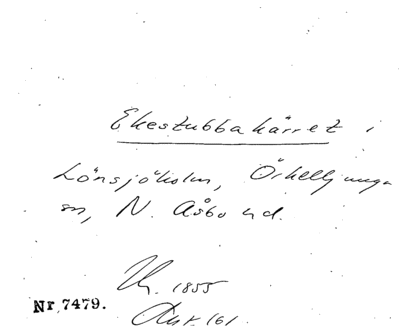 Ekestubbakärret i
Lönsjöholm, Örkelljunga
sn, N. Åsbo hd.
Uh. 1855
Nr 7479.
Ant. 161